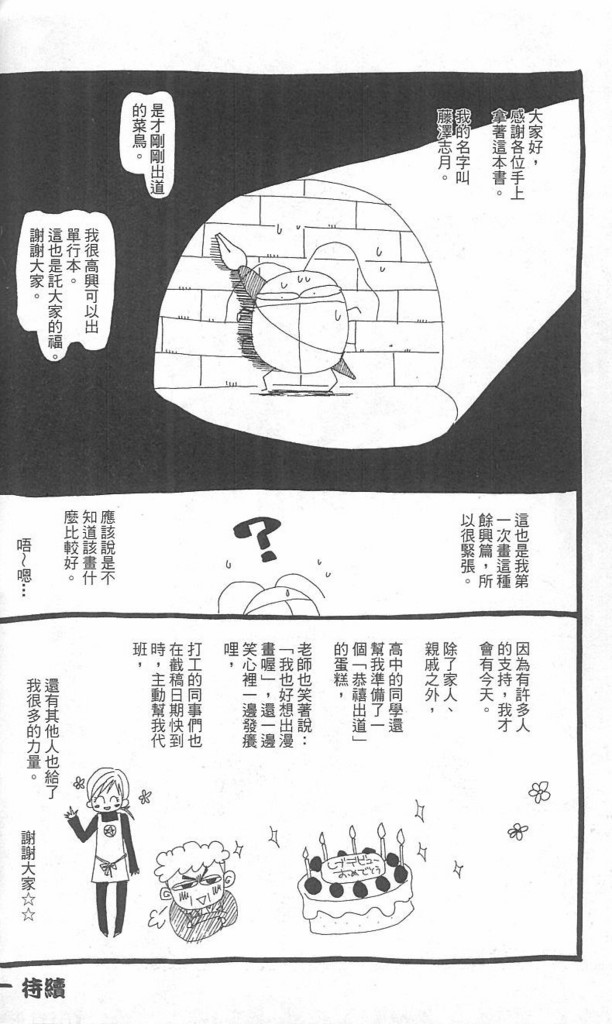 大家好，
感謝各位手上
拿著這本書。
我的名字叫
藤澤志月。
是才剛剛出道
的菜鳥。
我很高興可以出
單行本。
這也是託大家的福。
謝謝大家。
這也是我第
一次畫這種
餘興篇，所
以很緊張。
?
應該說是不
知道該畫什
麼比較好。
唔~嗯…
因為有許多人
的支持，我才
會有今天。
除了家人、
親戚之外，
高中的同學還
幫我準備了一
個「恭禧出道」
的蛋糕，
老師也笑著說：
「我也好想出漫
畫喔」，還一邊
笑心裡一邊發癢
哩，
打工的同事們也
在截稿日期快到
時，主動幫我代
班，
還有其他人也給了
我很多的力量。
謝謝大家☆☆
デビュー
おめでとう
待續